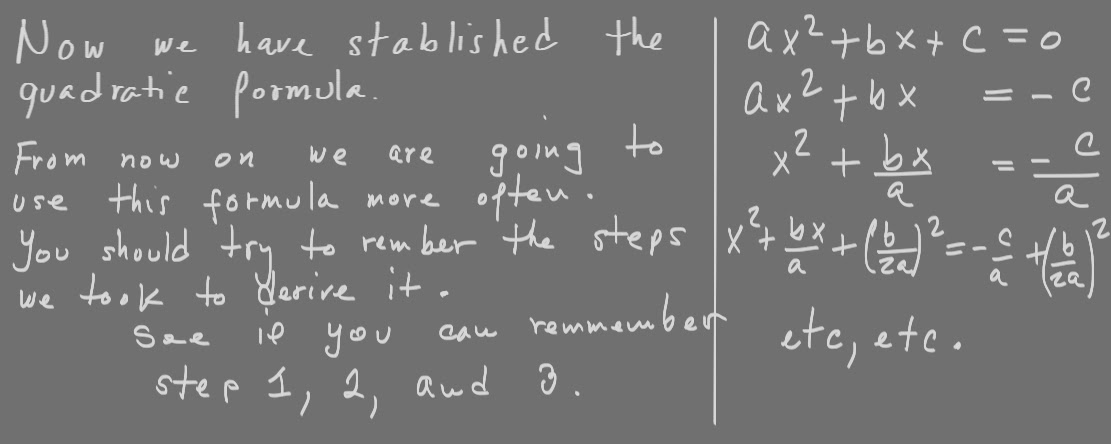 Now we have stablished the
quadratic formula.
From now on we are going to
use this formula more often.
You should try to rember the steps
we took to derive it.
See if you can remmember
step 1, 2, and 3.
ax² + bx + c = 0
ax² + bx = - c
x² + bx/a = - c/a
x² + bx/a + (b/2a)² = - c/a + (b/2a)²
etc, etc.